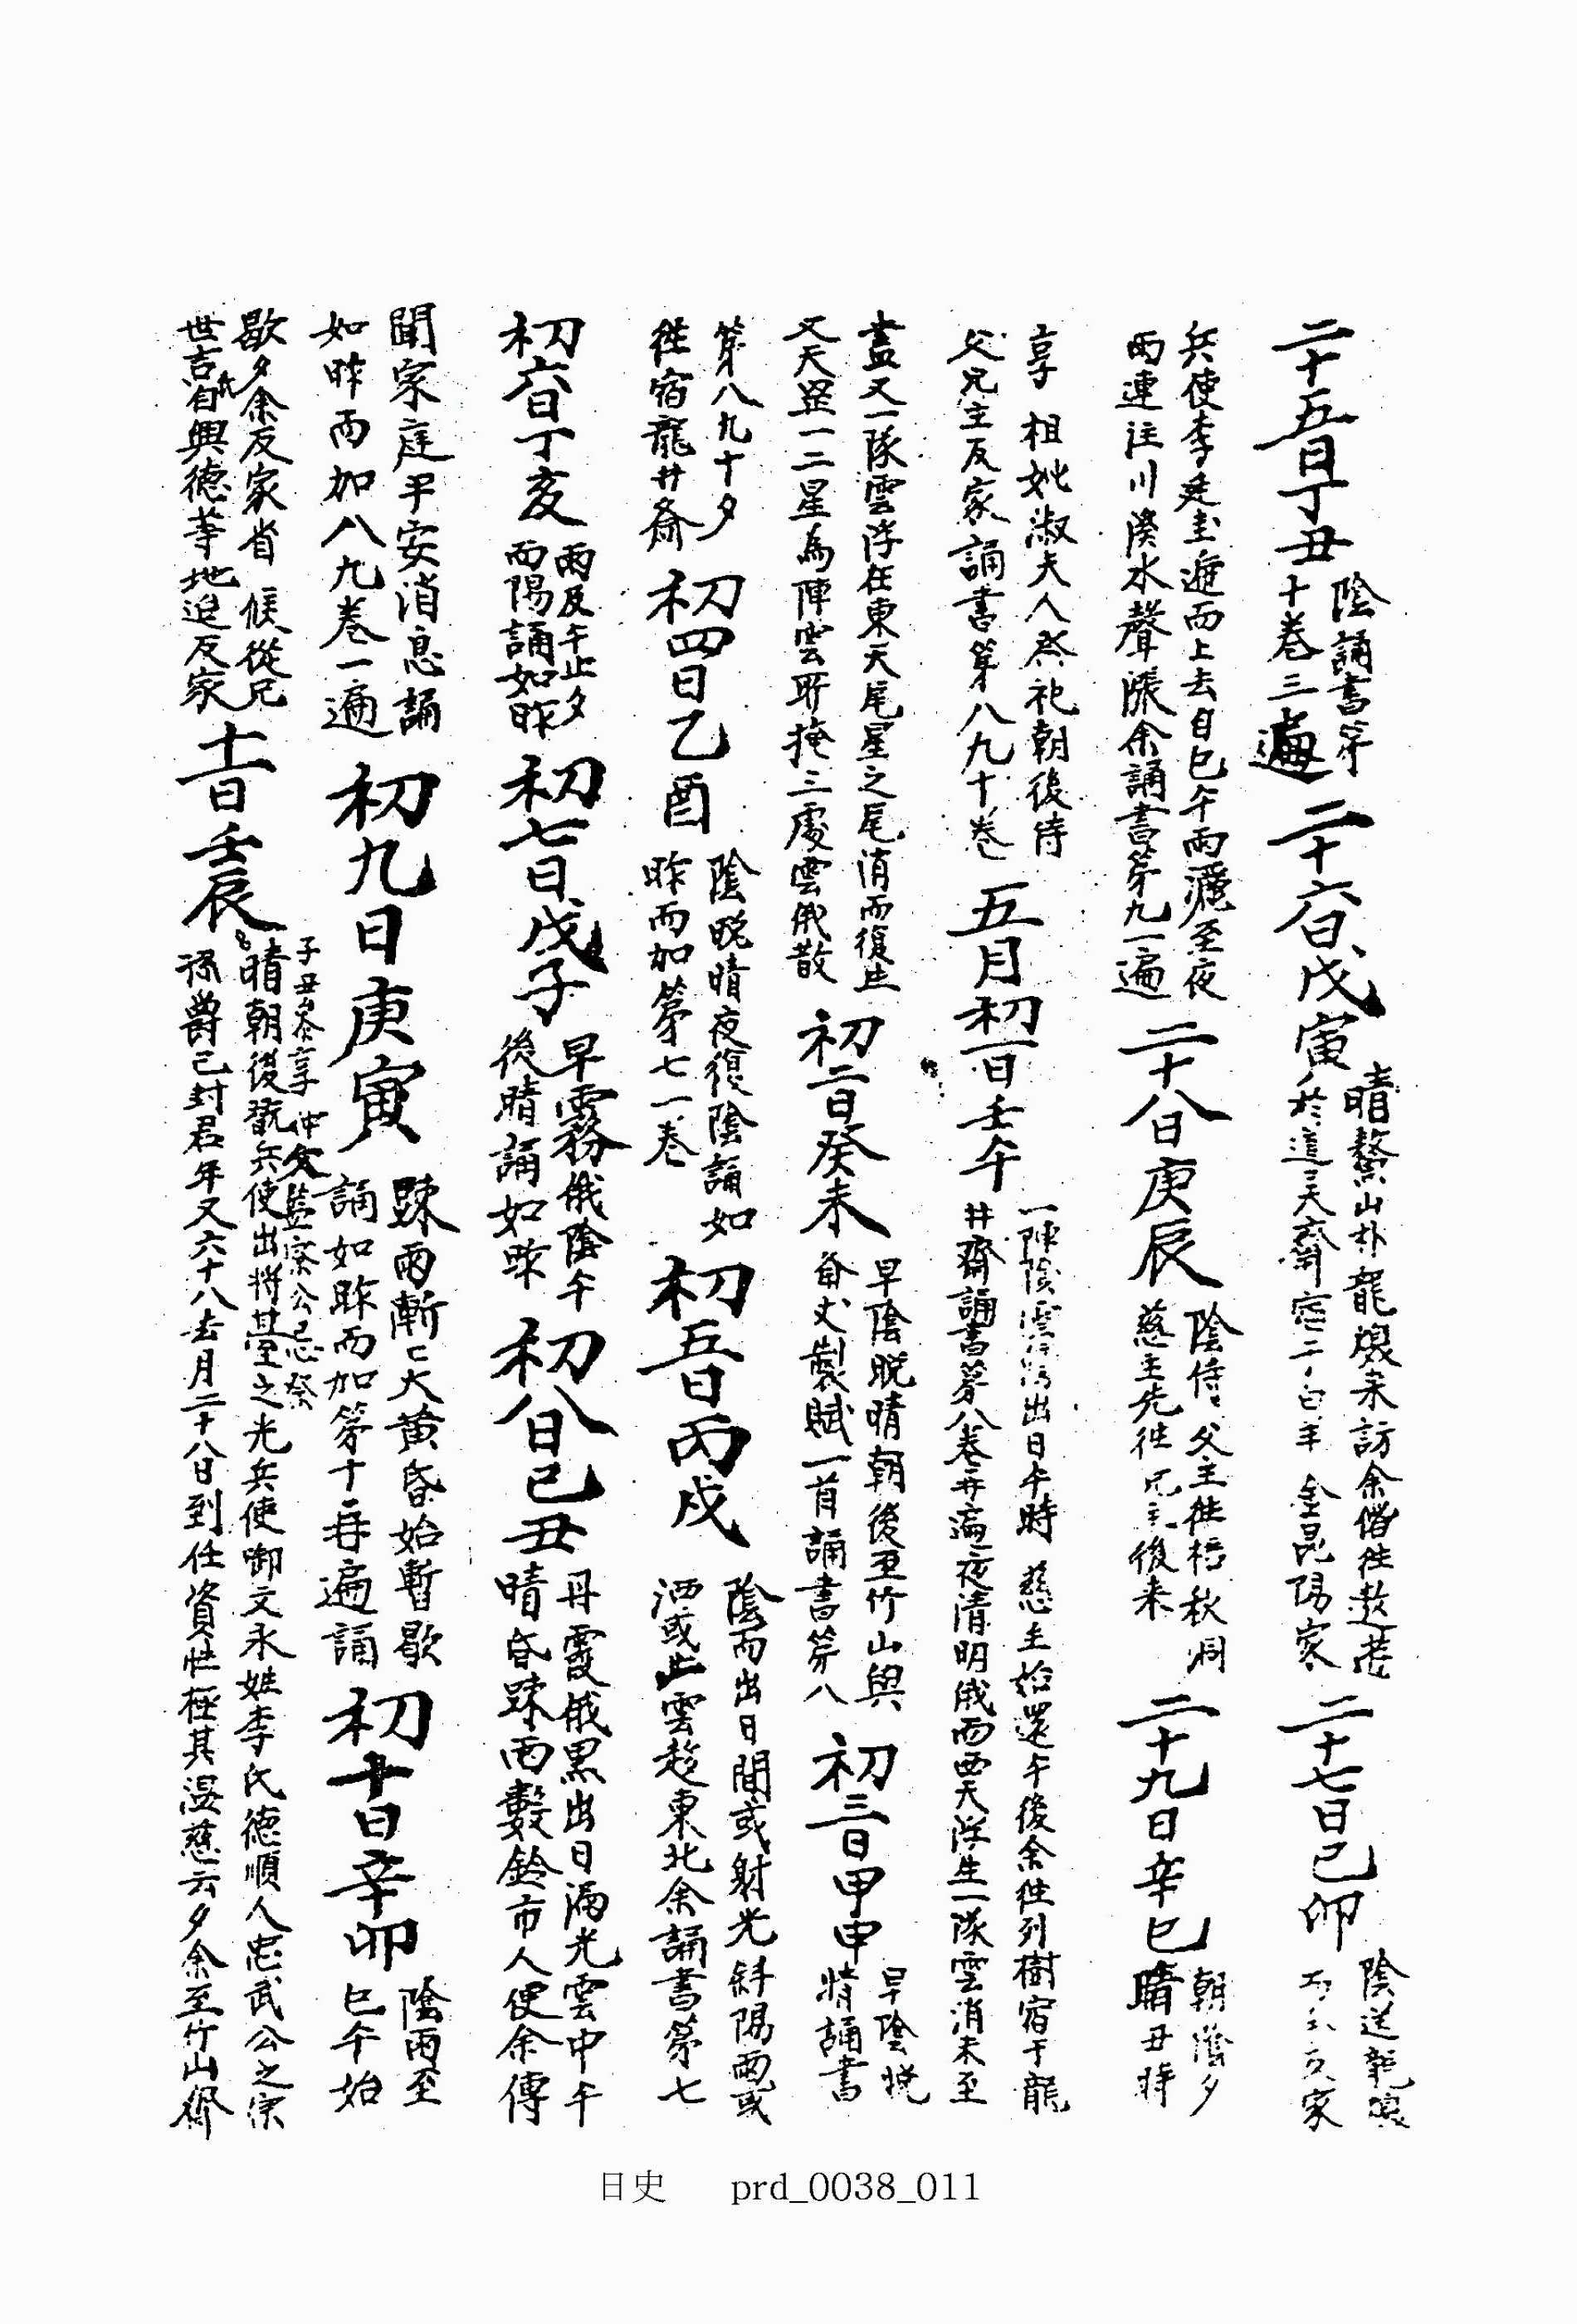 二十五日丁丑
陰誦書第
十卷三遍
二十六日戊寅
晴鰲山朴龍煥來訪余偕往
於道天齋
二十七日己卯
陰送龍煥
家
兵使李廷圭遞而上去自巳午雨灑至夜
雨連注川溪水聲漲余誦書第九一遍
二十八日庚辰
陰侍 父主往梧秋洞
慈主先往兄主後來
二十九日辛巳
朝陰夕
晴丑時
享 祖妣淑夫人祭祀朝後侍
父兄主反家誦書第八九十卷
五月初一日壬午
一陣陰雲 出日午時 慈主始還午後余往列樹宿于龍
井齋誦書第八卷再遍夜清明俄而西天浮生一隊雲消未至
盡又一隊雲浮在東天尾星之尾消而復生
又天罡一二星為陣雲所掩三處雲俄散
初二日癸未
早陰晩晴朝後至竹山與
製賦一首誦書第八
初三日甲申
早陰晩
晴誦書
第八九十夕
往宿龍井齋
初四日乙酉
陰晩晴夜復陰誦如
昨而加第七一卷
初五日丙戌
陰而出日間或射光斜陽雨或
洒或止雲趍東北余誦書第七
初六日丁亥
雨及午止夕
而陽誦如昨
初七日戊子
早霧俄陰午
後晴誦如昨
初八日己丑
丹霞俄黑出日漏光雲中午
晴昏踈雨數鈴市人便余傳
聞家庭平安消息誦
如昨而加八九卷一遍
初九日庚寅
踈雨漸々大黃昏始暫歇
誦如昨而加第十再遍誦
初十日辛卯
陰雨至
巳午始
歇夕余反家省 候從兄
世吉氏自興德等地返反家
十一日壬辰
子丑參享 仲父監察公忌祭
晴朝後號兵使出將基室之光兵使啣文永姓李氏德順人忠武公之宗
孫爵已封君年又六十八去月二十八日到任資性極其溫慈云夕余至竹山齋
日史 prd_0038_011